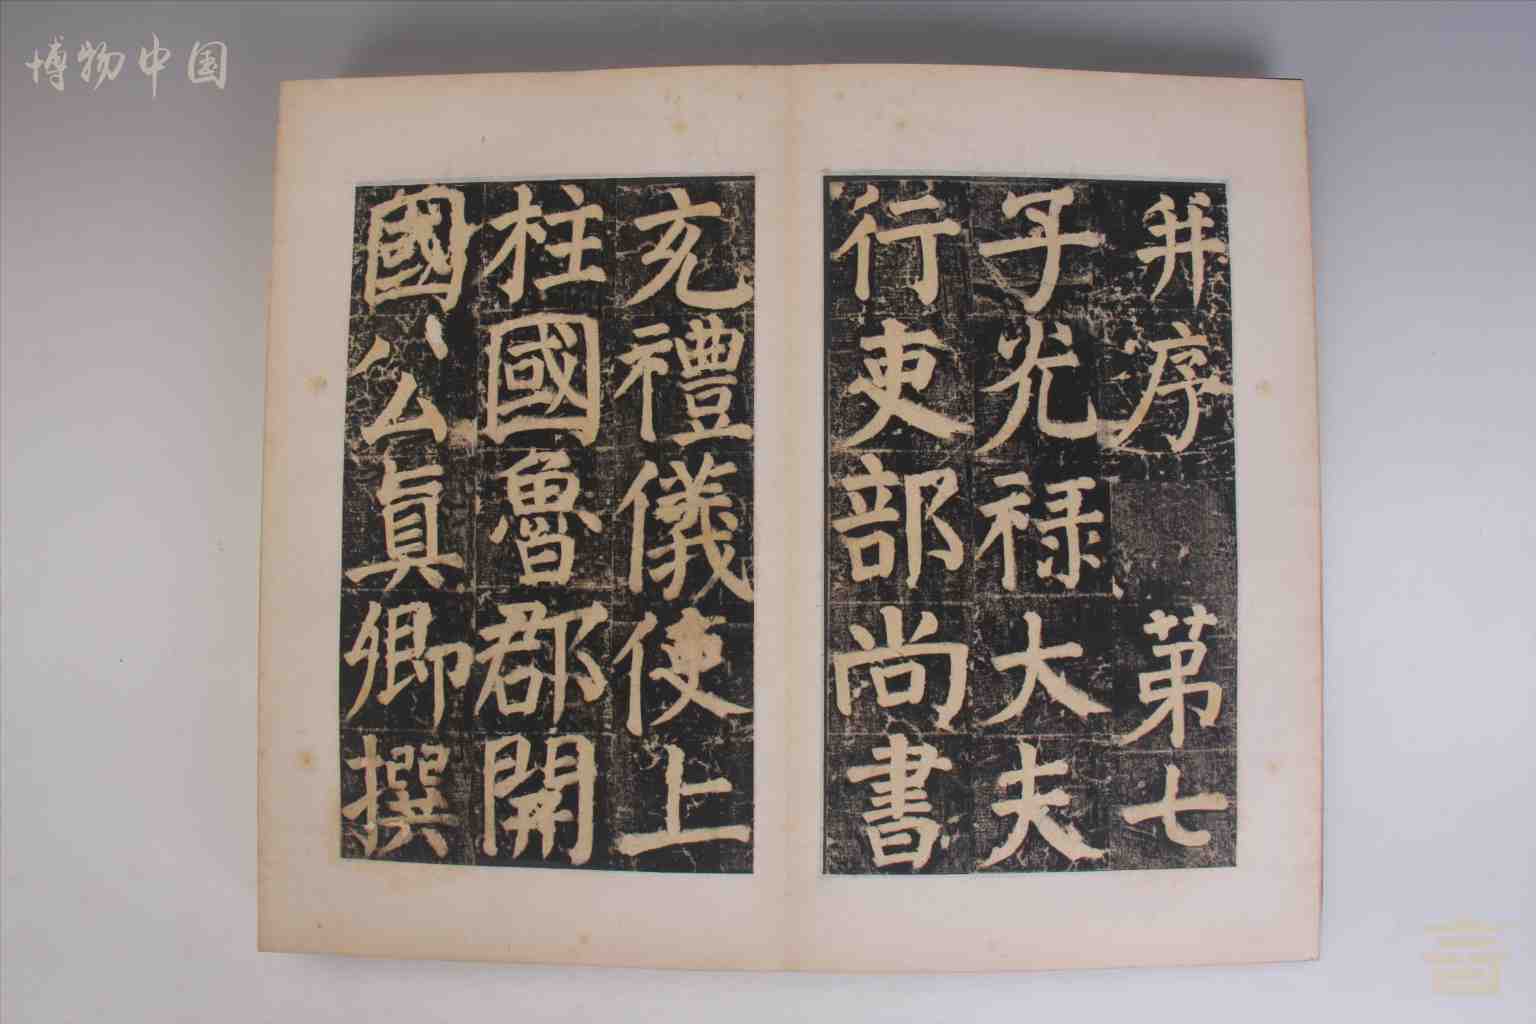 博物中国
并序 第七
子光禄大夫
行吏部尚書
充禮儀使上
柱國魯郡開
國公真卿撰